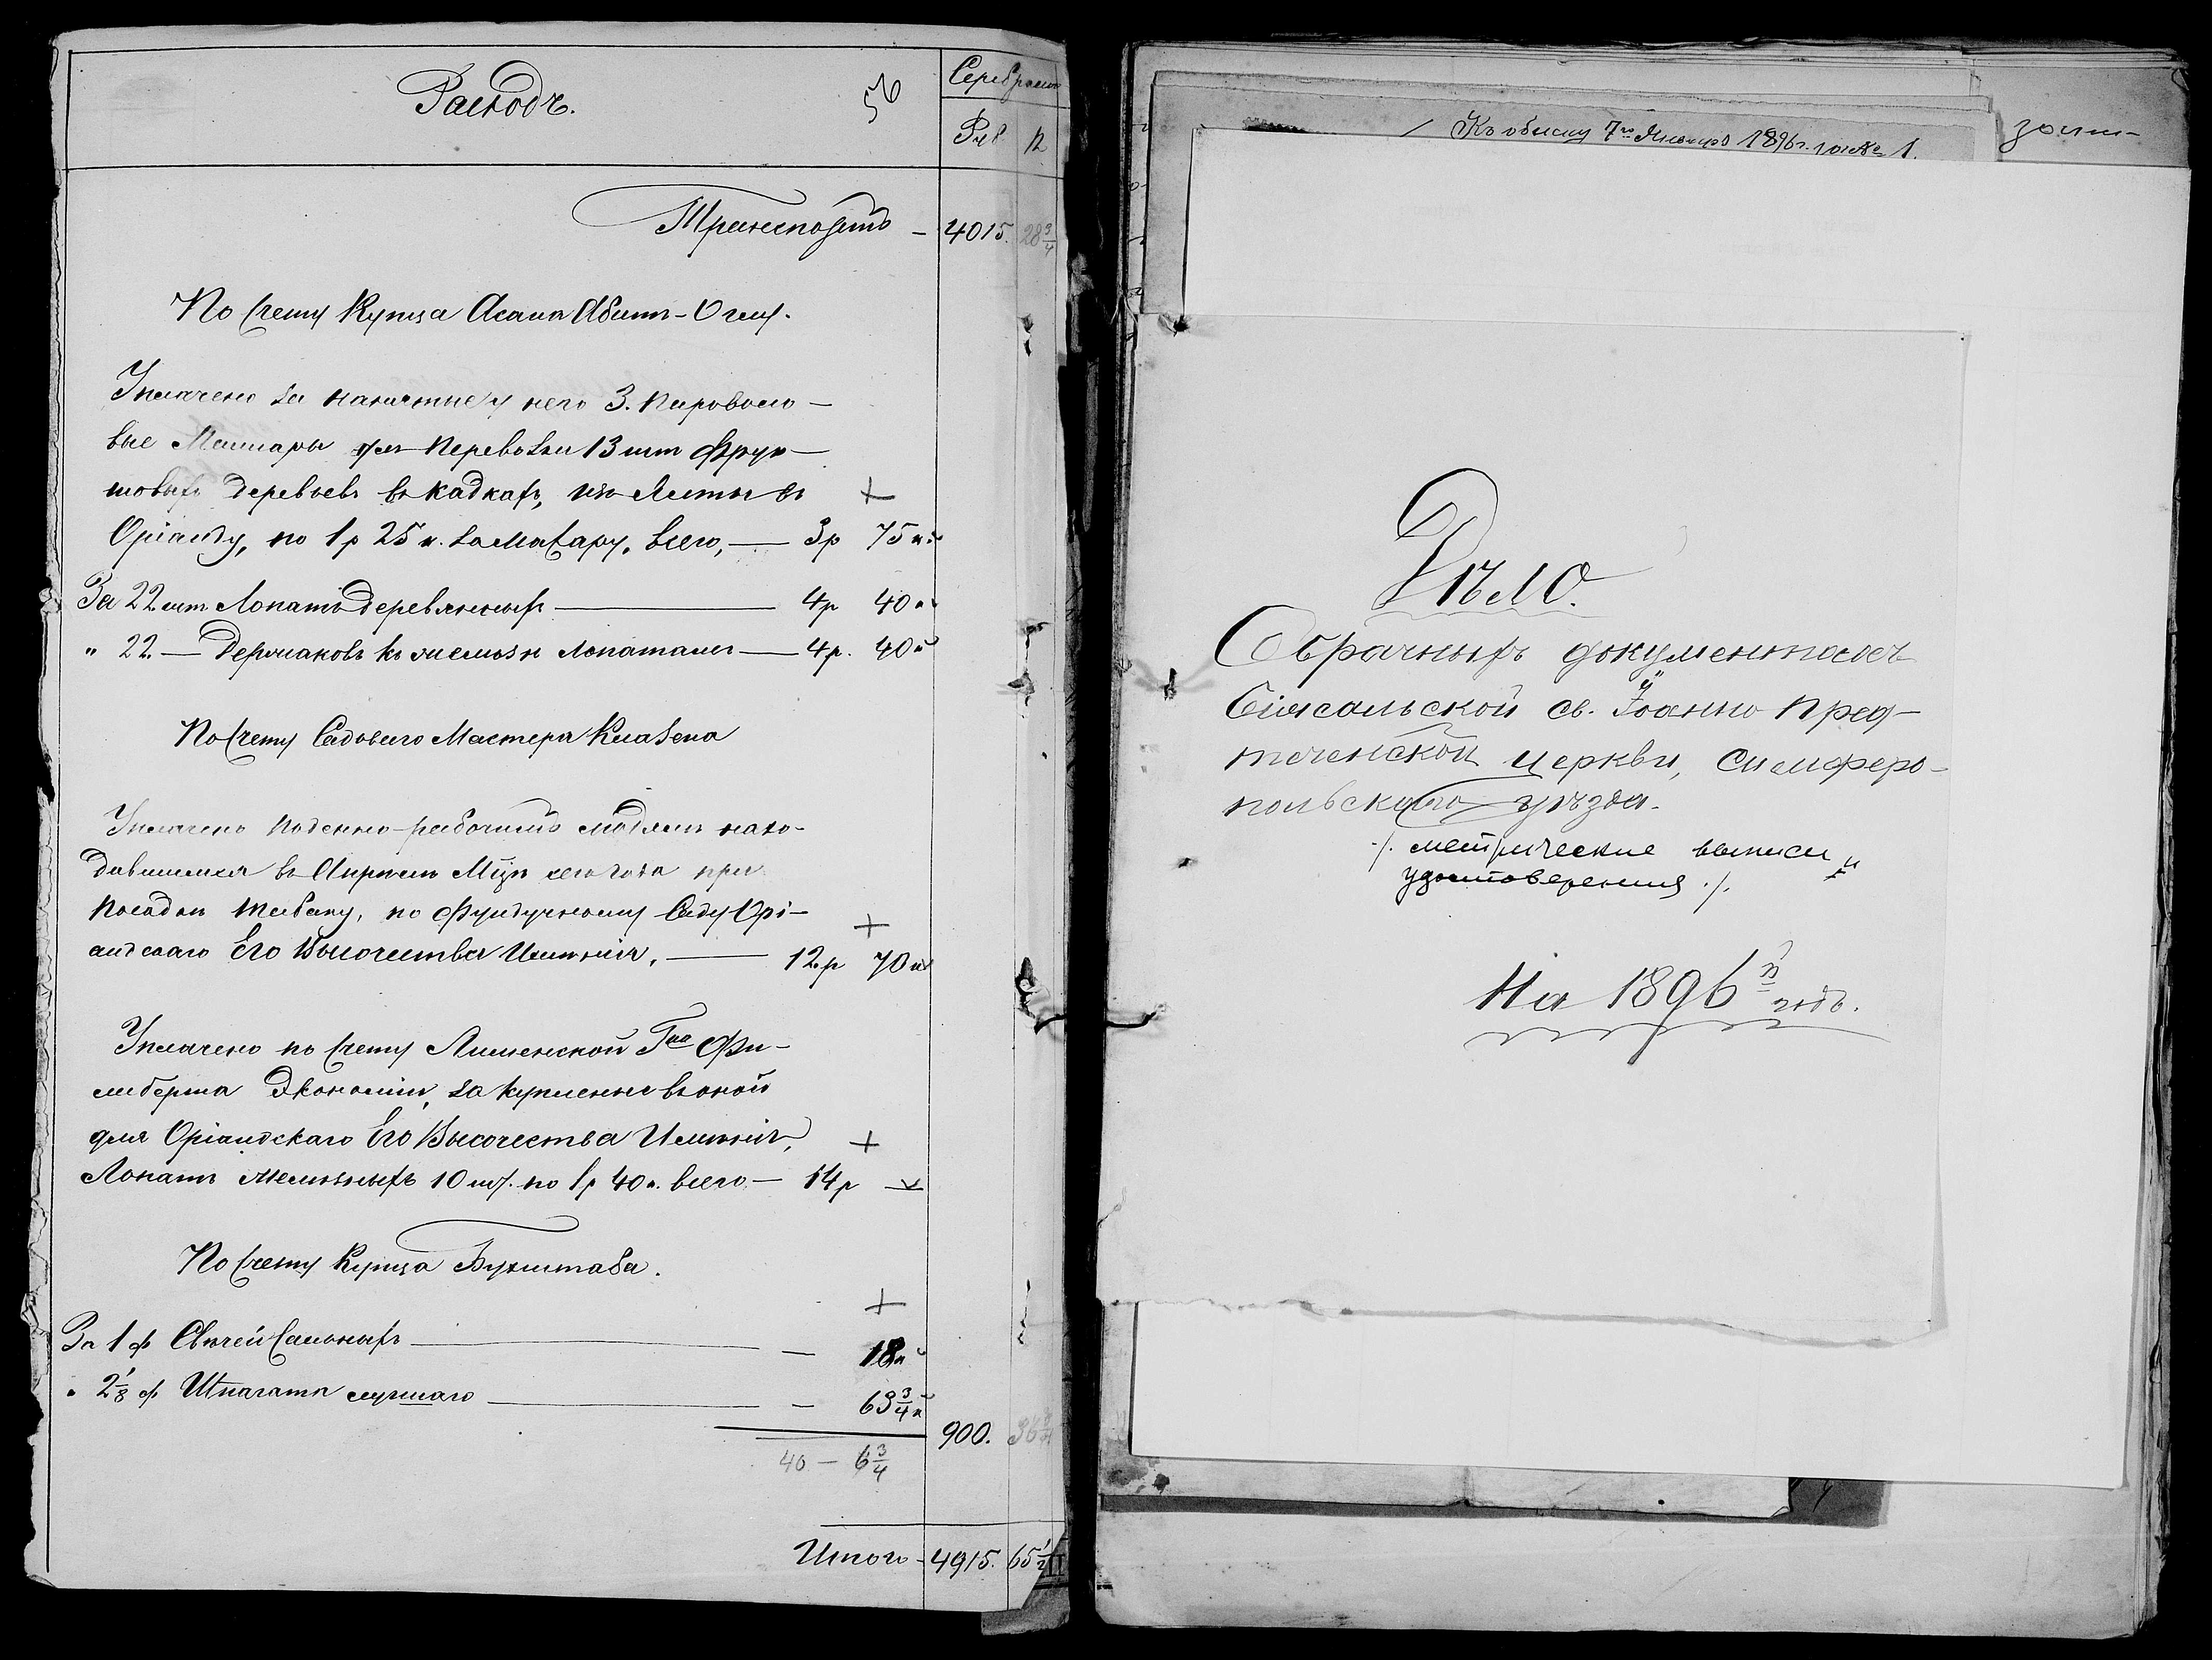 Расходъ.
56
Серебромъ
Руб К
Транспортъ – 4015. 28 3/4
По Счету Купца Асана Абитъ-Оглу.
Уплачено за нанятые у него 3. Пароволо-
вые Мажары для Перевозки 13 шт Фрук-
товыхъ деревьевъ въ Кадкахъ, изъ Ялты въ +
Оріанду, по 1р 25к. за Мажару, всего, — 3р 75к
За 22 шт Лопатъ деревянныхъ — 4р 40к
" 22. — Держаковъ къ желѣзн Лопатамъ — 4р. 40к
По Счету Садоваго Мастера
Уплачено Поденно-рабочимъ людямъ нахо-
дившимся въ Апрѣлѣ Мцѣ сего года при
Посадкѣ Табаку, по Фундучному Саду Орі- +
андскаго Его Высочества Имѣнія, — 12.р 70к
Уплачено по Счету Лименской Гна Фи-
либерта Экономіи, за купленные въ оной
для Оріандскаго Его Высочества Имѣнія, +
Лопатъ желѣзныхъ 10 шт. по 1р 40к. всего — 14р —
По Счету Купца
+
За 1 ф Свѣчей Сальныхъ — — 18к
" 2 1/8 ф Шпагата лучшаго — — 63 3/4 к
900. 36 3/4
40 — 6 3/4
Итого - 4915. 65 1/2
Къ обыску 7го Января 1896г. №1.
Дѣло.
О брачныхъ документахъ
Біясальской св. Іоанно Пред-
теченской церкви, Симферо-
польскаго уѣзда.
./. метрическіе выписи и
удостоверения ./.
На 1896й годъ.